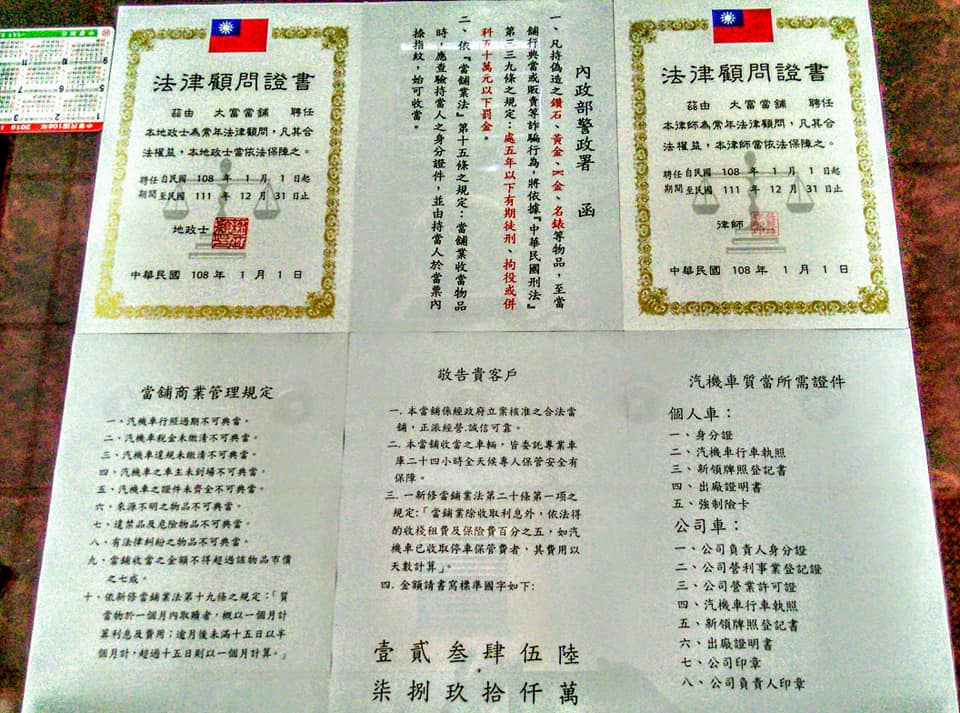 法律顧問證書
茲由 大富當舖 聘任
本地政士為常年法律顧問，凡其合
法權益，本地政士當依法保障之。
聘任自民國 108 年 1 月 1 日起
期間至民國 111 年 12 月 31 日止
地政士
中華民國 108 年 1 月 1 日
內政部警政署 函
一、凡持偽造之鑽石、黃金、K金、名錶等物品，至當
舖行典當或販賣等詐騙行為，將依據『中華民國刑法』
第三三九條之規定：處五年以下有期徒刑、拘役或併
科五十萬元以下罰金。
二、依『當舖業法』第十五條之規定：當舖業收當物品
時，應查驗持當人之身分證件，並由持當人於當票內
捺指紋，始可收當。
法律顧問證書
茲由 大富當舖 聘任
本律師為常年法律顧問，凡其合
法權益，本律師當依法保障之。
聘任自民國 108 年 1 月 1 日起
期間至民國 111 年 12 月 31 日止
律師
中華民國 108 年 1 月 1 日
當舖商業管理規定
一、汽機車行照過期不可典當。
二、汽機車稅金未繳清不可典當。
三、汽機車違規未繳清不可典當。
四、汽機車之車主未到場不可典當。
五、汽機車之證件未齊全不可典當。
六、來源不明之物品不可典當。
七、違禁品及危險物品不可典當。
八、有法律糾紛之物品不可典當。
九、當舖收當之金額不得超過該物品市價
之七成。
十、依新修當舖業法第十九條之規定：「質
當物於一個月內取贖者，概以一個月計
算利息及費用；逾月後未滿十五日以半
個月計，超過十五日則以一個月計算。」
敬告貴客戶
一. 本當舖係經政府立案核准之合法當
舖，正派經營.誠信可靠。
二. 本當舖收當之車輛，皆委託專業車
庫二十四小時全天候專人保管安全有
保障。
三. 一新修當舖業法第二十條第一項之
規定:「當舖業除收取利息外，依法得
酌收棧租費及保險費百分之五，如汽
機車已收取停車保管費者，其費用以
天數計算」。
四. 金額請書寫標準國字如下:
壹貳叁肆伍陸
柒捌玖拾仟萬
汽機車質當所需證件
個人車：
一、身分證
二、汽機車行車執照
三、新領牌照登記書
四、出廠證明書
五、強制險卡
公司車：
一、公司負責人身分證
二、公司營利事業登記證
三、公司營業許可證
四、汽機車行車執照
五、新領牌照登記書
六、出廠證明書
七、公司印章
八、公司負責人印章